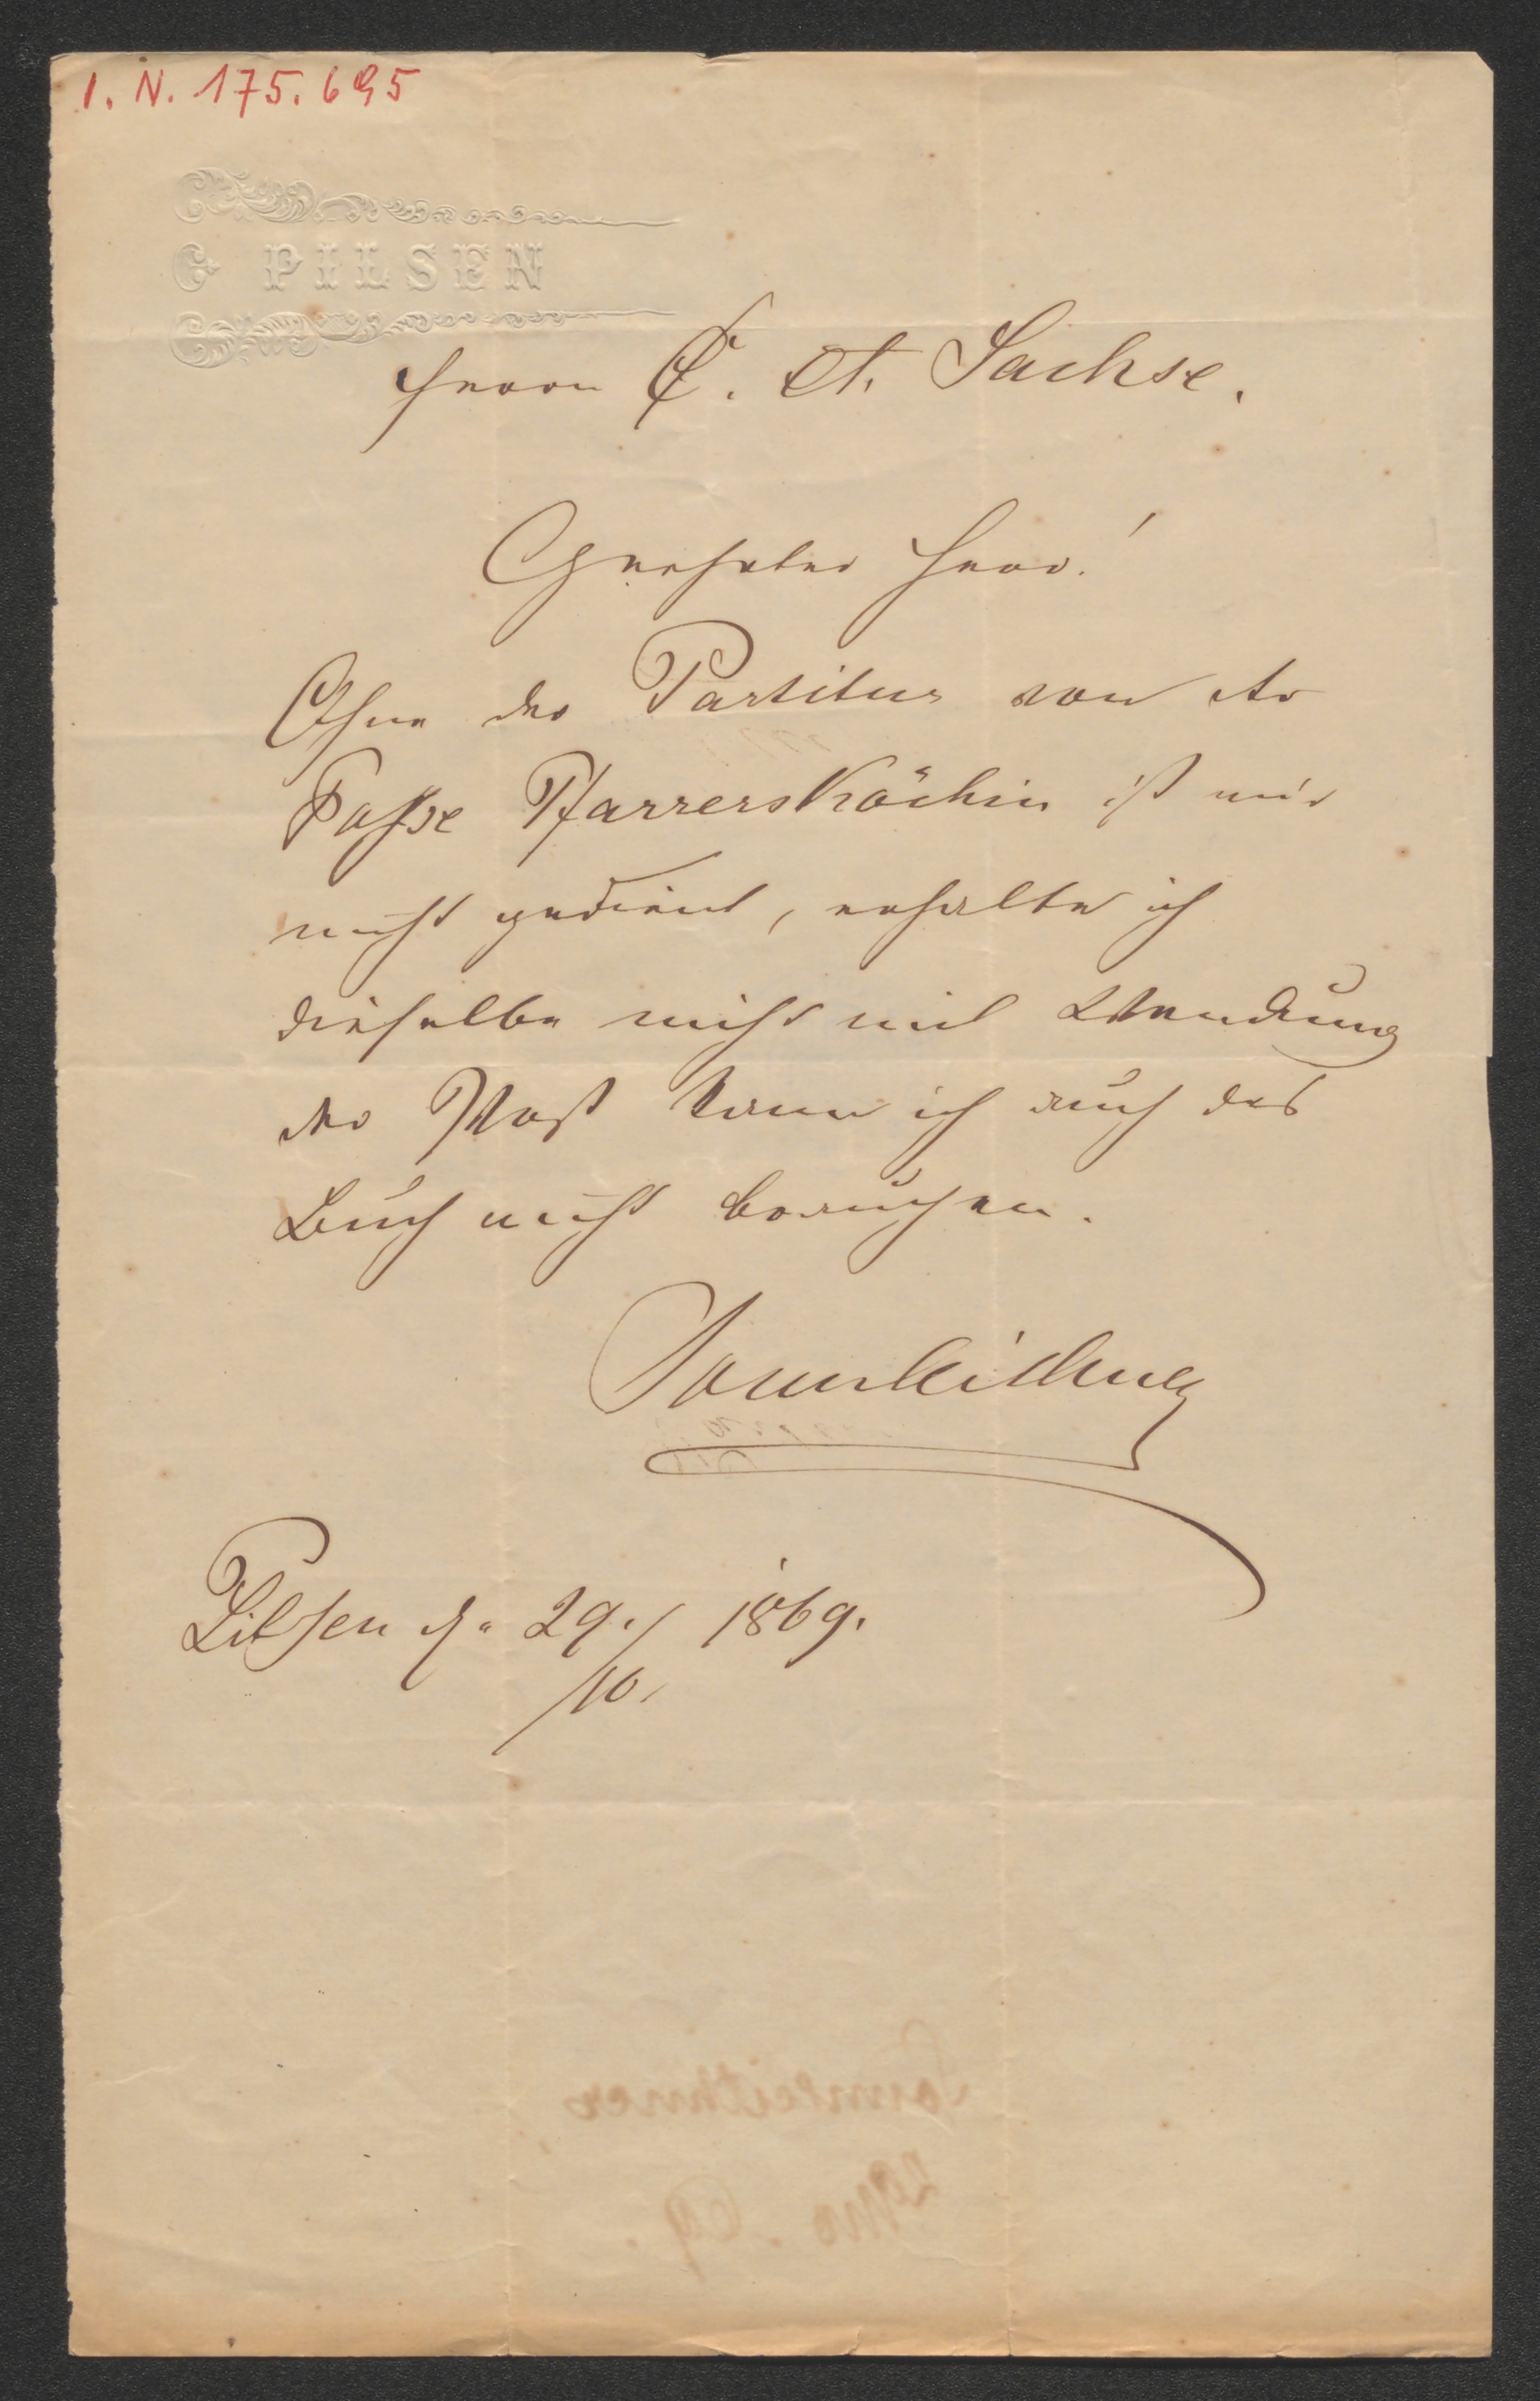 I. N. 175.695
PILSEN
Herrn C. A. Sachse.
Geehrter Herr!
Ohne der Partitur von der
Posse Pfarrersköchin ist mir
nicht gedient, erhalte ich
dieselbe nicht mit Wendung
der Post kann ich auch das
Buch nicht brauchen.
Pilsen d. 29./10. 1869.